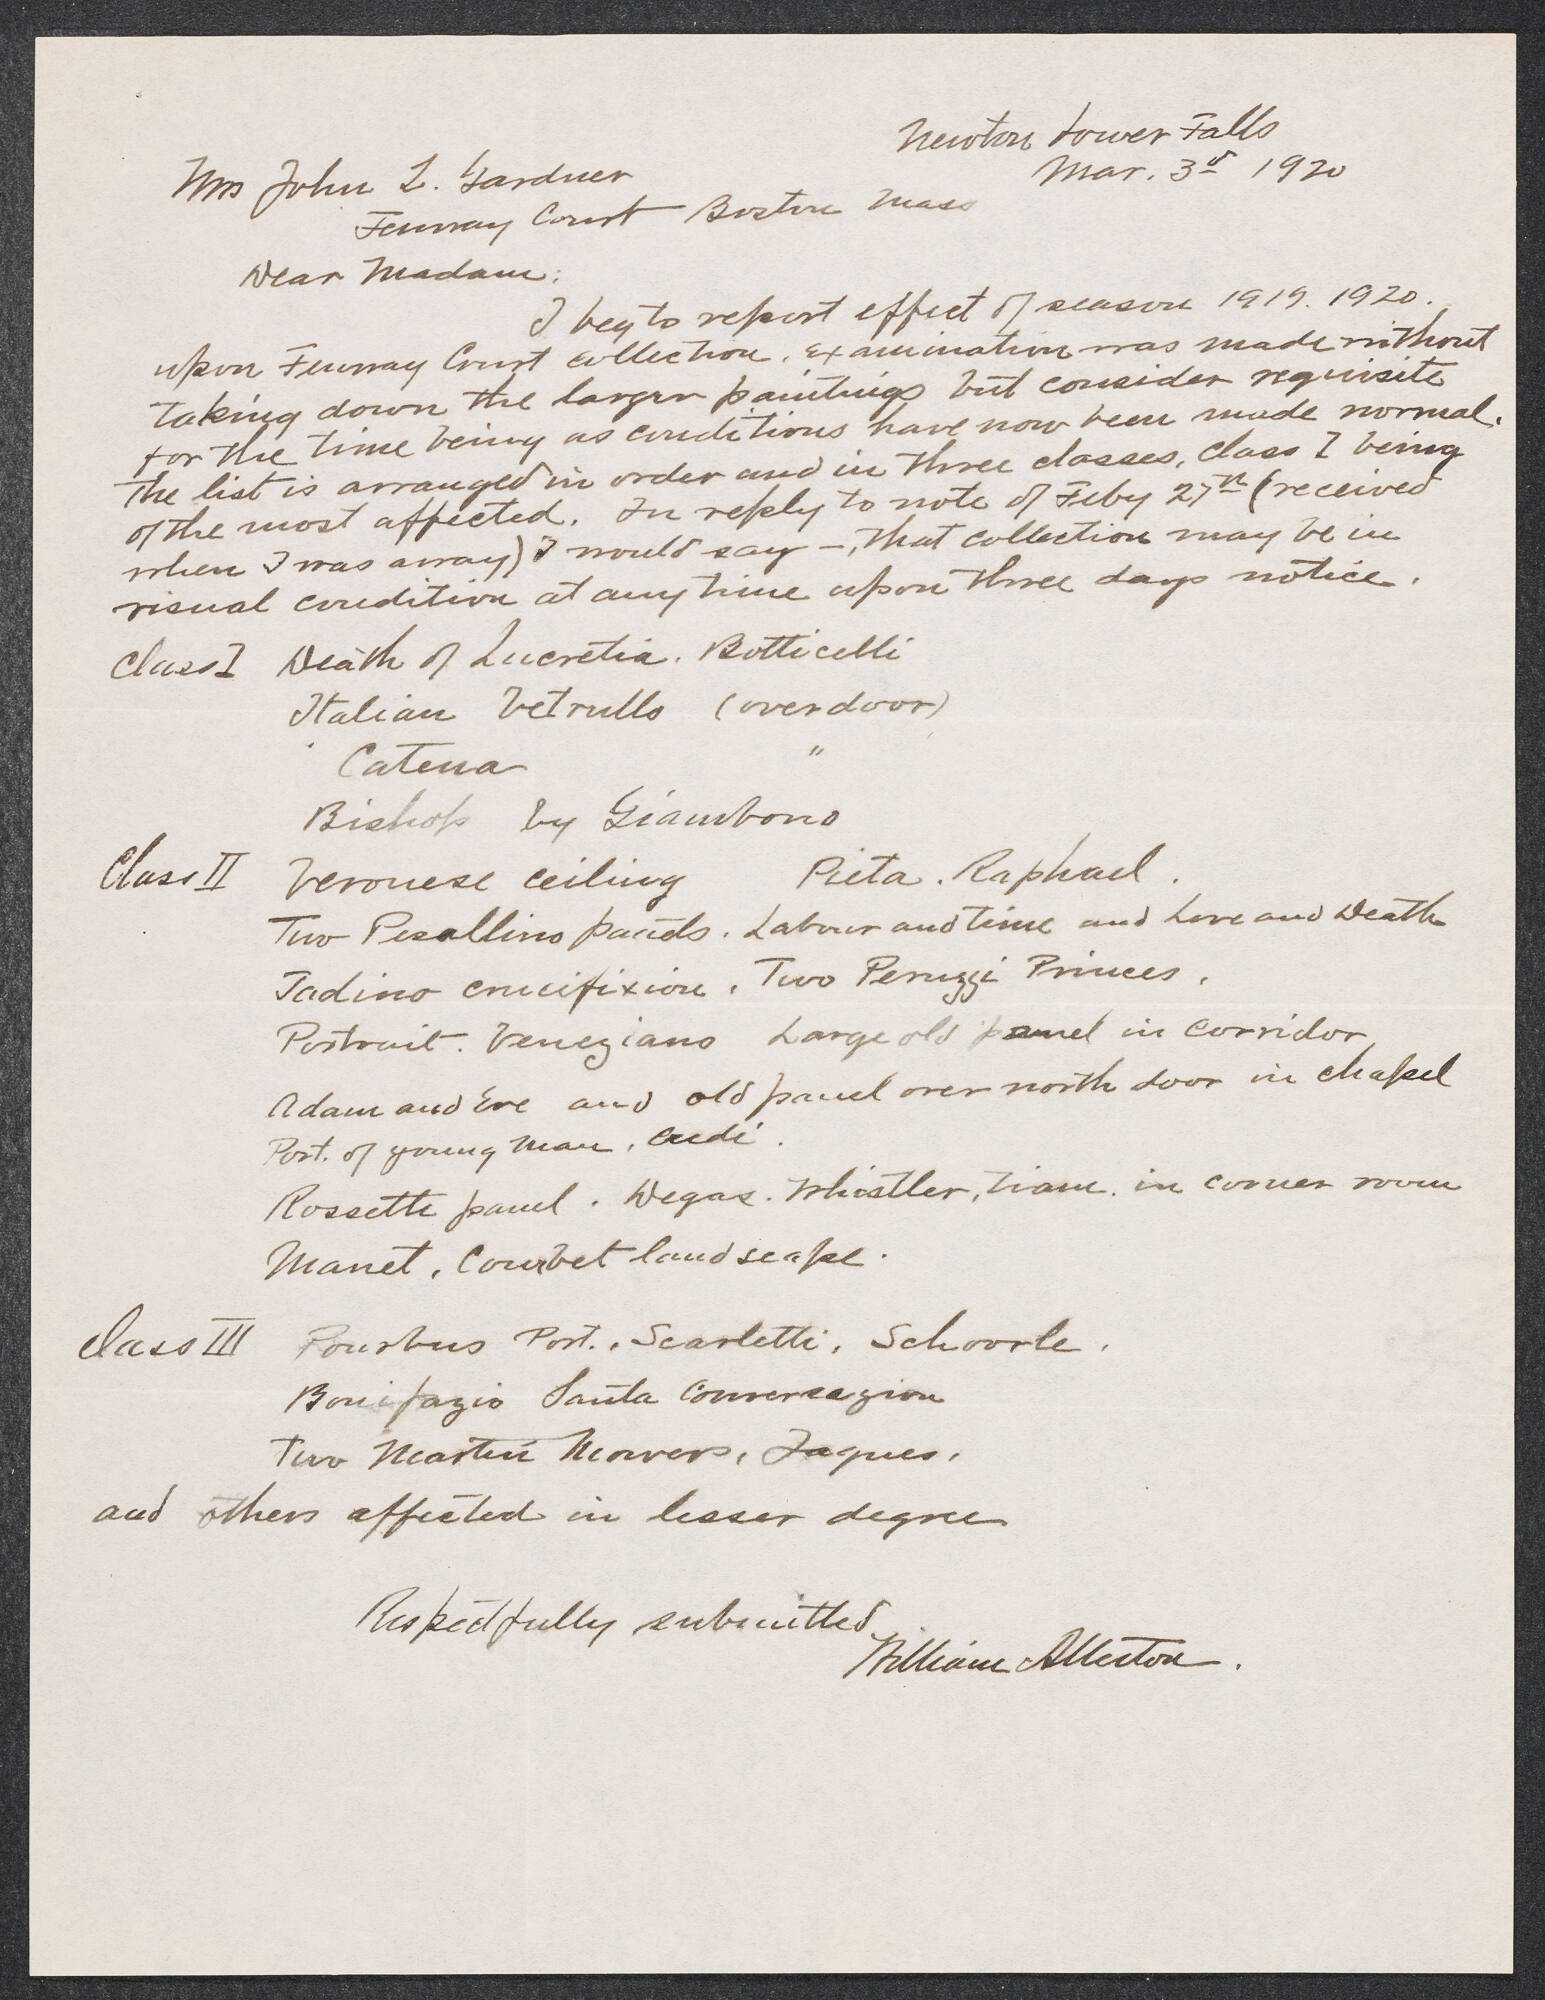 Newton Lower Falls
Mar. 3d 1920
Mrs John L. Gardner
Fenway Court Boston Mass
Dear Madam:
I beg to report effect of season 1919. 1920.
upon Fenway Court collection. Examination was made without
taking down the larger paintings but consider requisite
for the time being as conditions have now been made normal.
The list is arranged in order and in three classes, Class I being
of the most affected. In reply to note of Feby 27th (received
when I was away) I would say —, that collection may be in
visual condition at any time upon three days notice.
Class I Death of Lucretia. Botticelli
Italian Vetrullo (over door)
Catena "
Bishop by Giambono
Class II Veronese ceiling Pieta. Raphael.
Two Pesallino panels. Labour and Time and Love and Death
Tadino crucifixion. Two Peruzzi Princes.
Portrait. Veneziano Large old panel in corridor
Adam and Eve and old panel over north door in chapel
Port. of young man,
Rossetti panel. Degas. Whistler, in corner room
Manet, Courbet landscape.
Class III Pourbus Port., Scarletti, Schoorle.
Bonifazio Santa Conversazion
Two Martin Mowers, Jaques.
and others affected in lesser degree
Respectfully submitted
William Allerton.